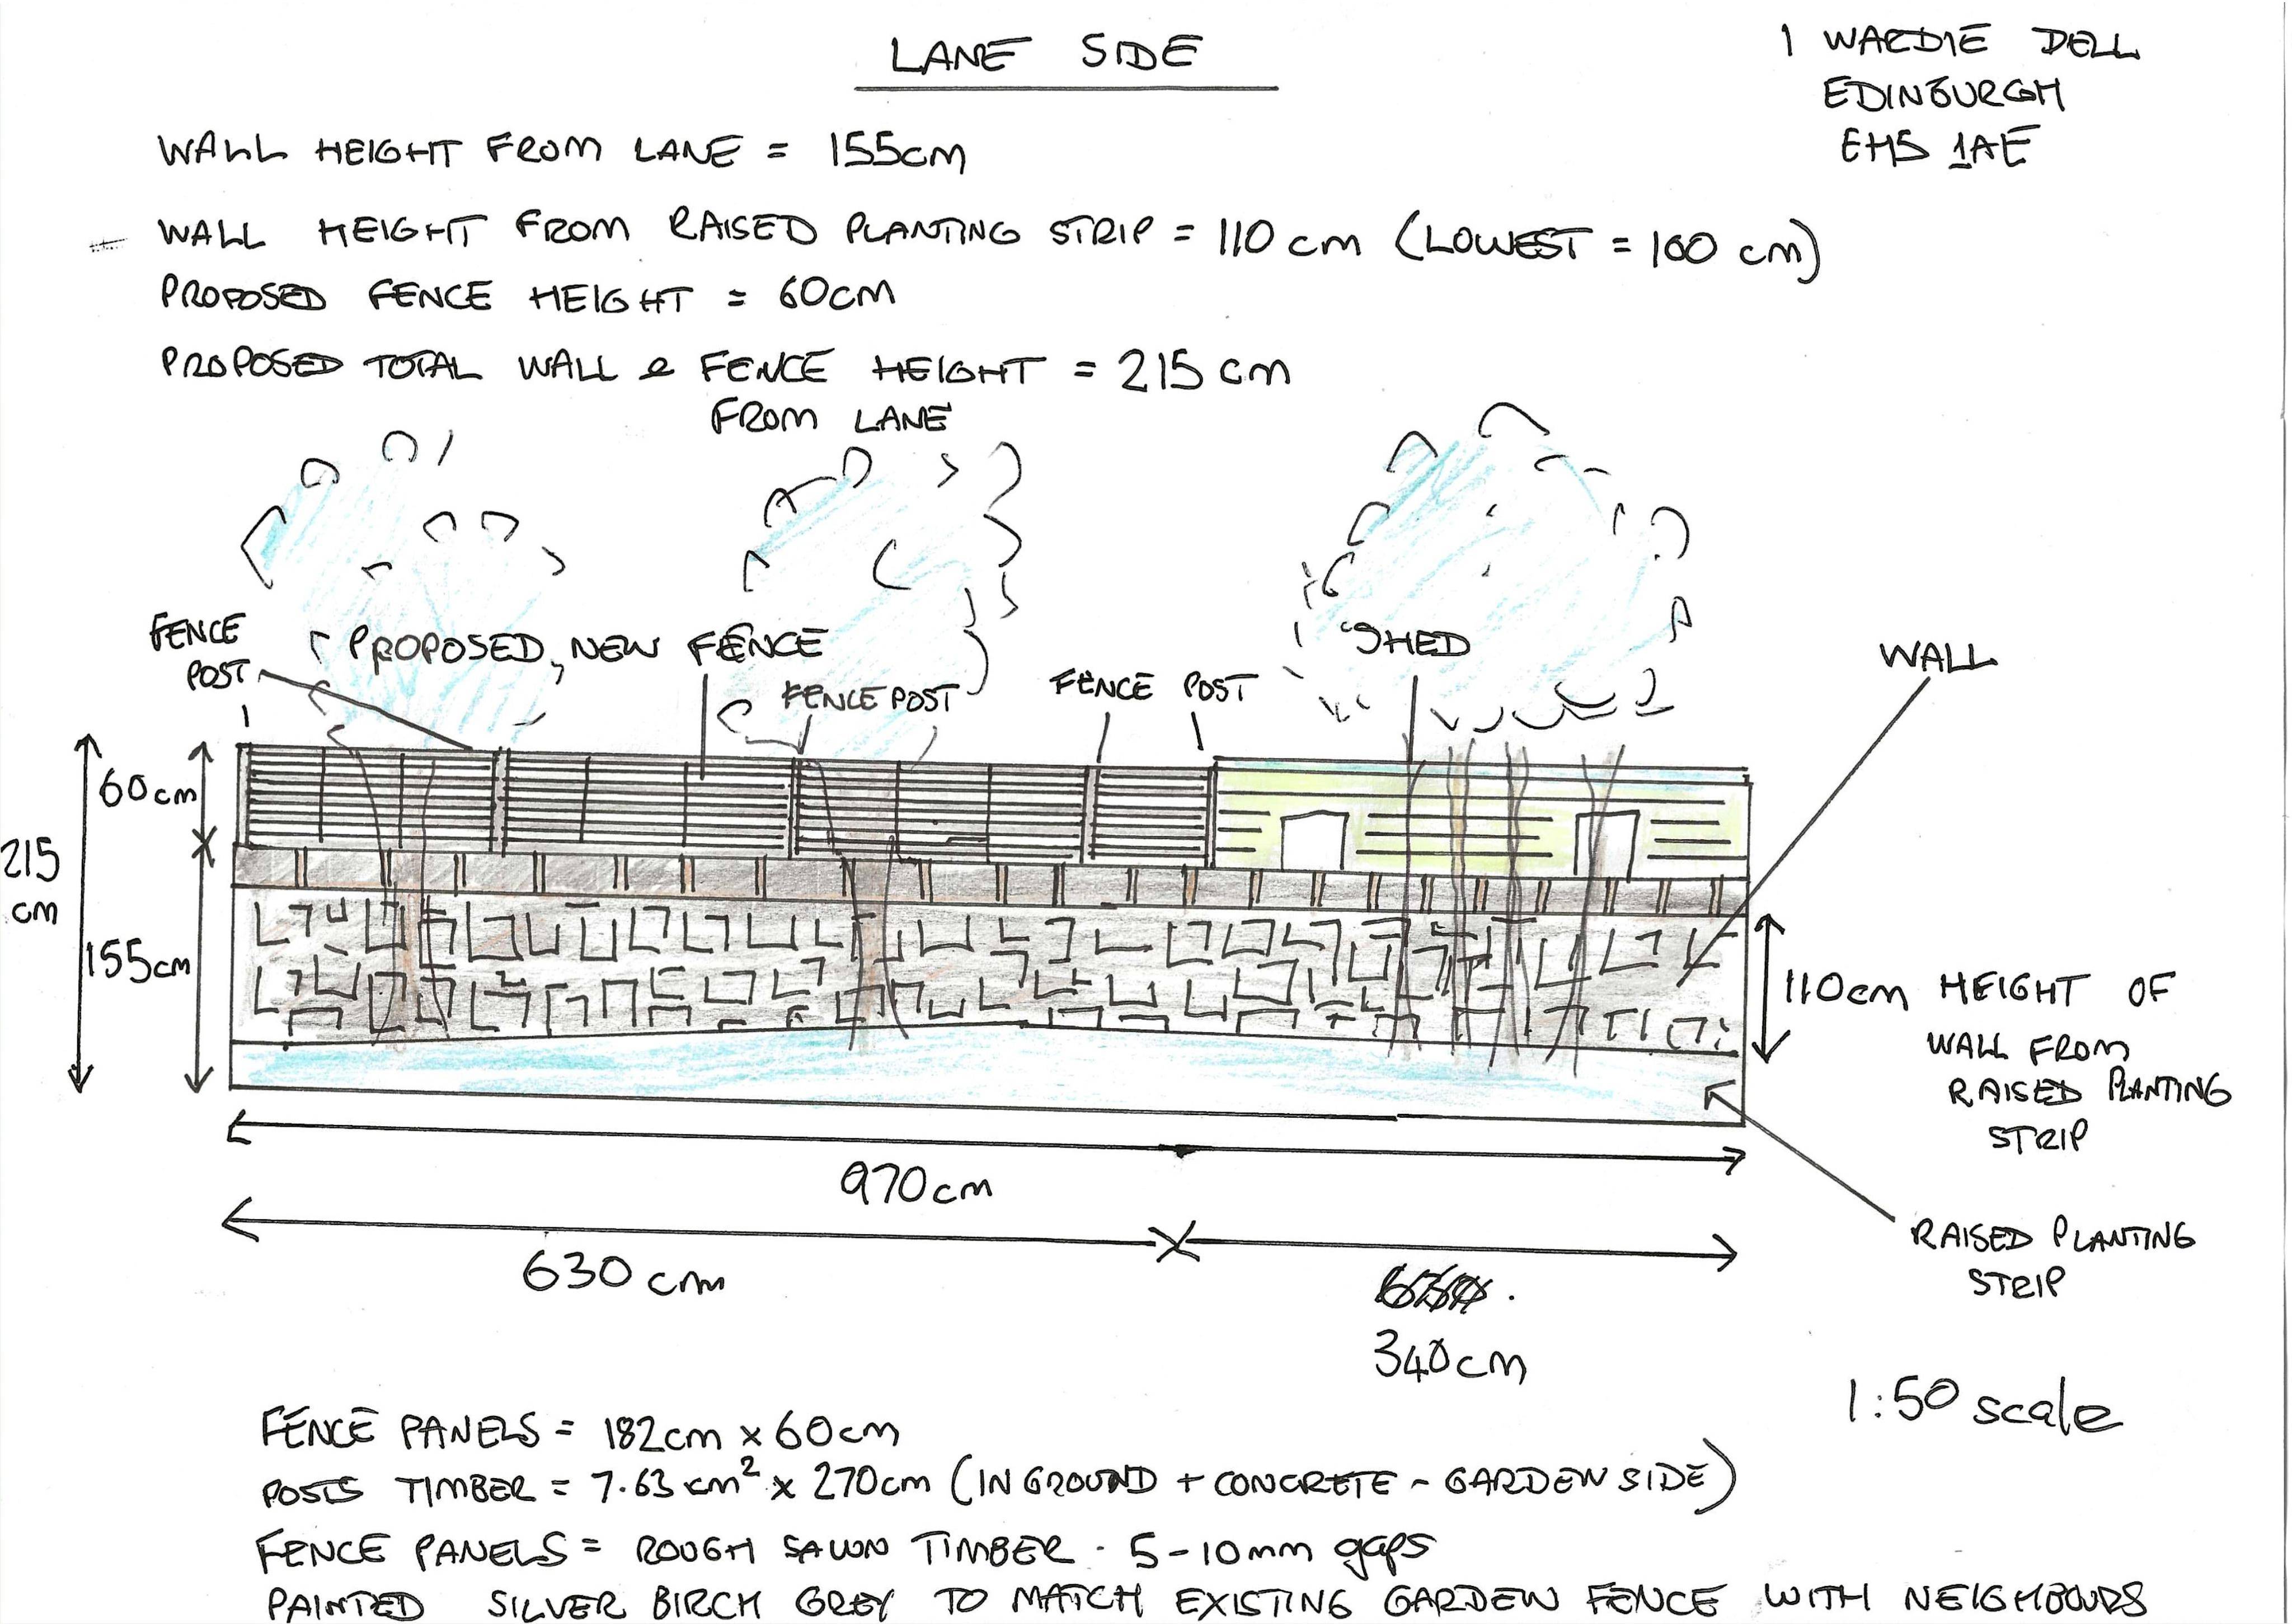 LANE SIDE
1 WARDIE DELL
EDINBURGH
EH5 1AE
WALL HEIGHT FROM LANE = 155cm
WALL HEIGHT FROM RAISED PLANTING STRIP = 110 cm (LOWEST = 100 cm)
PROPOSED FENCE HEIGHT = 60cm
PROPOSED TOTAL WALL & FENCE HEIGHT = 215 cm
FROM LANE
FENCE
POST
PROPOSED NEW FENCE
FENCE POST
FENCE POST
SHED
WALL
60cm
215
cm
155cm
110cm HEIGHT OF
WALL FROM
RAISED PLANTING
STRIP
970cm
RAISED PLANTING
STRIP
630 cm
340cm
1:50 scale
FENCE PANELS = 182cm x 60cm
POSTS TIMBER = 7.63 cm² x 270cm (IN GROUND + CONCRETE - GARDEN SIDE)
FENCE PANELS = ROUGH SAWN TIMBER · 5-10mm gaps
PAINTED SILVER BIRCH GREY TO MATCH EXISTING GARDEN FENCE WITH NEIGHBOURS